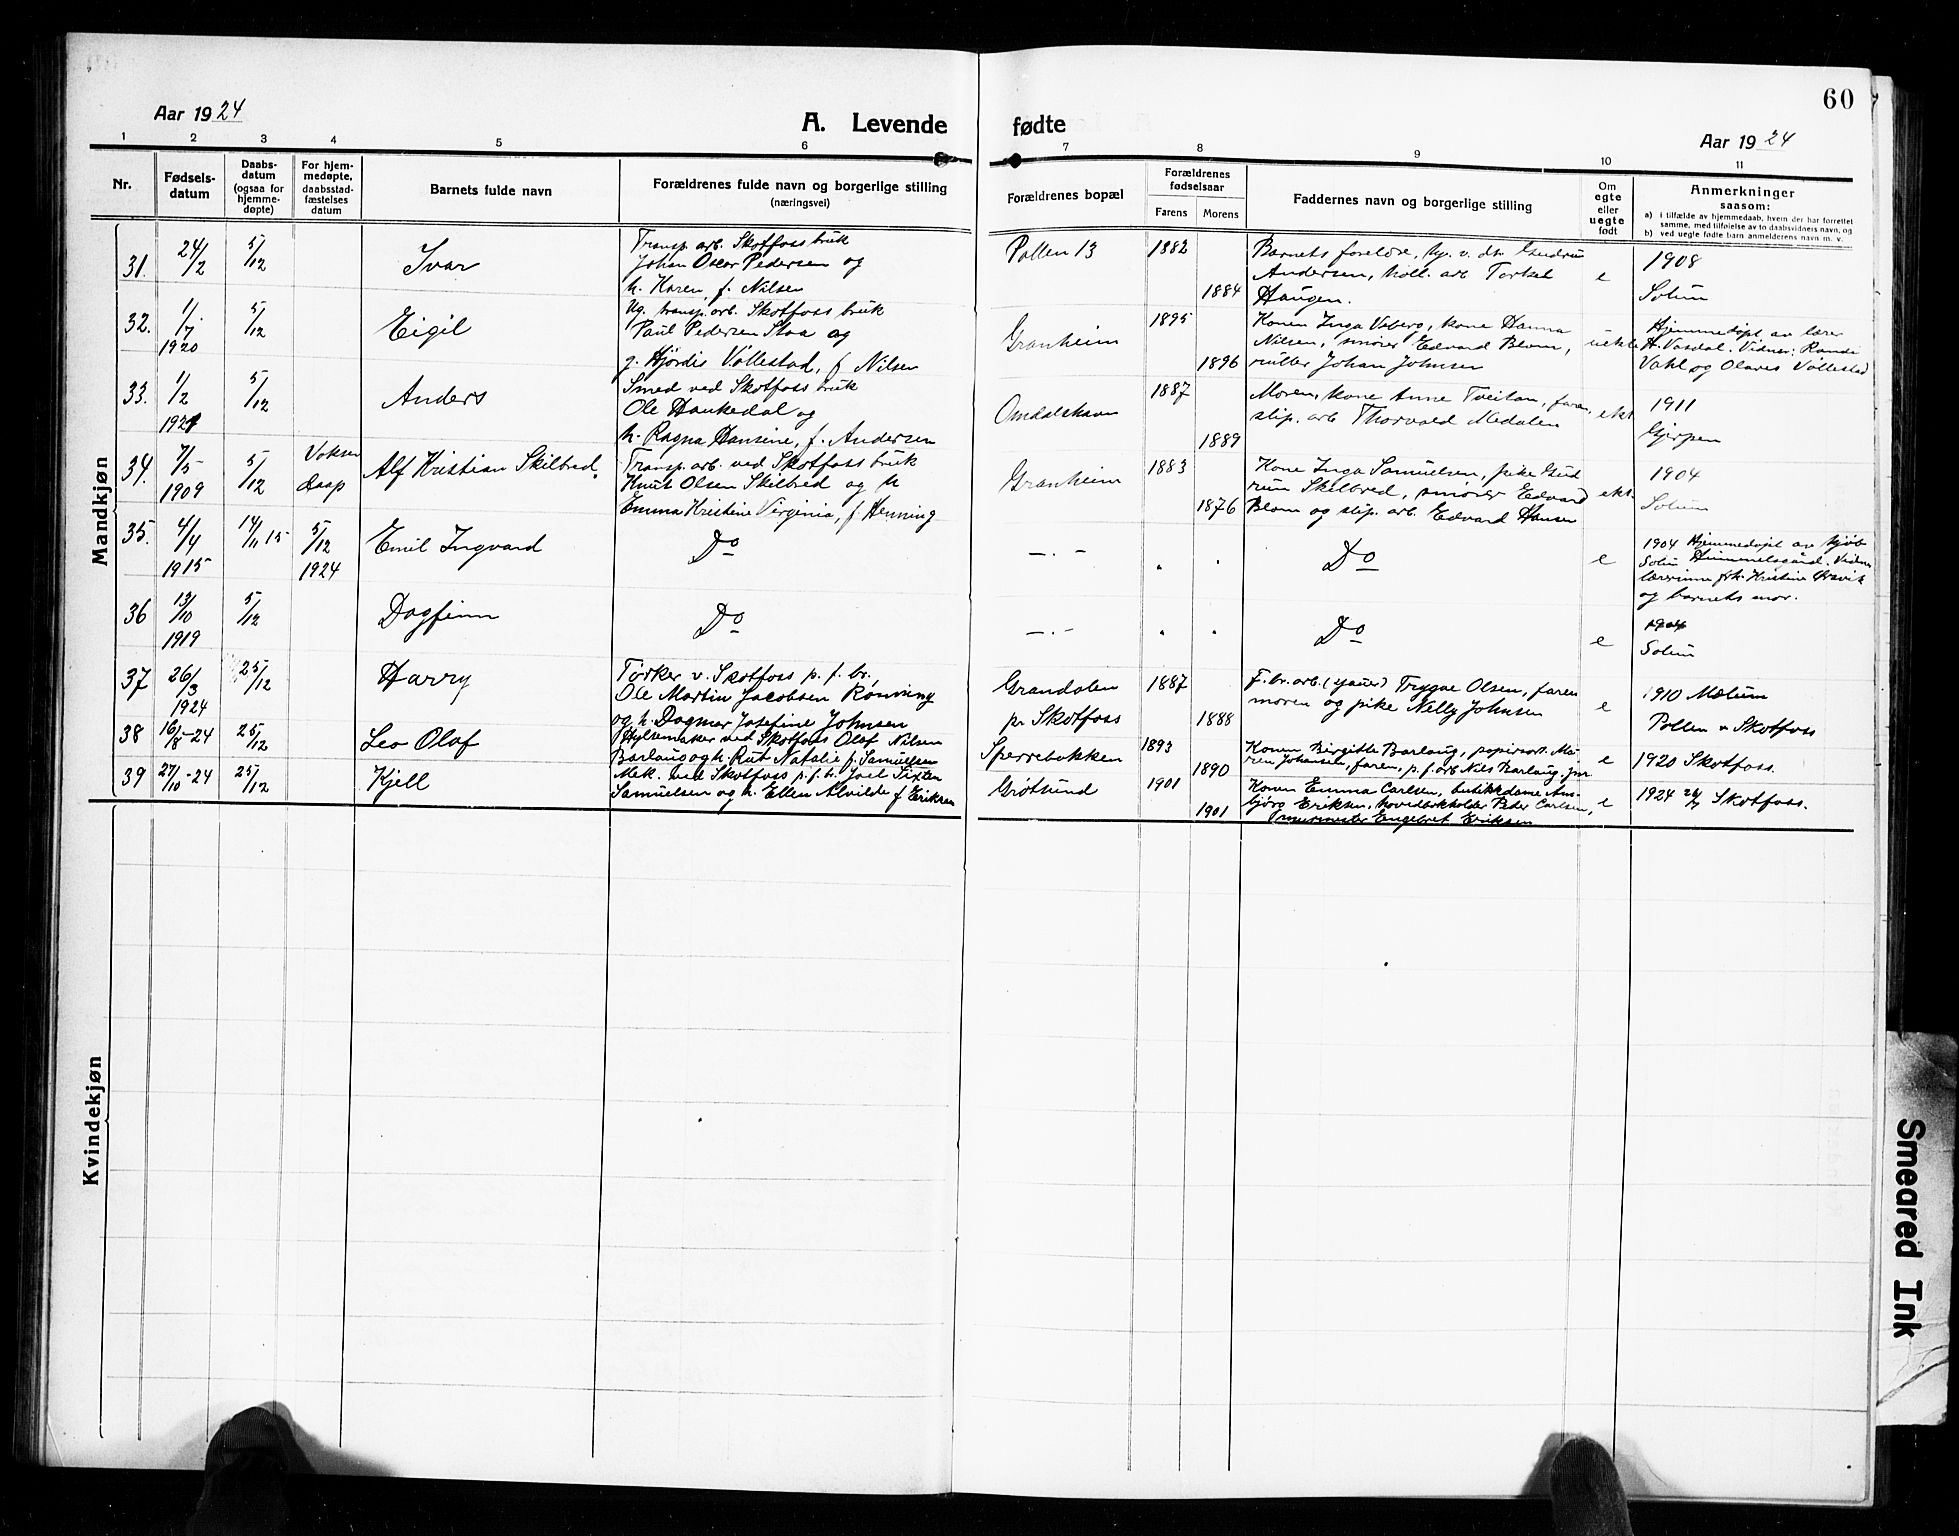 60
Aar 1924
A. Levende fødte
Aar 1924
1 2 3 4 5 6 7 8 9 10 11
Nr.
Fødsels-
datum
Daabs-
datum
(ogsaa for
hjemme-
døpte)
For hjem-
medøpte,
daabsstad-
fæstelses
datum
Barnets fulde navn
Forældrenes fulde navn og borgerlige stilling
(næringsvei)
Forældrenes bopæl
Forældrenes
fødselsaar
Farens Morens
Faddernes navn og borgerlige stilling
Om
egte
eller
uegte
født
Anmerkninger
saasom:
a) i tilfælde av hjemmedaab, hvem der har forrettet
samme, med tilføielse av to daabsvidners navn, og
b) ved uegte fødte barn anmelderens navn m. v.
Mandkjøn
31. 24/2 5/12 Ivar
Transp. arb. Skotfoss bruk
Johan Oscar Pedersen og
h. Karen, f. Nilsen
Pollen 13 1882 1884
Barnets foreldre, hp. v. dr. Gudrun
Andersen, holl. arb. Torkel
Haugen.
e
1908
Solum
32. 1/7 1920 5/12 Eigil
Ug. transp. arb. Skotfoss bruk
Paul Pedersen Staa og
g. Hjördis Vollestad, f. Nilsen
Granheim 1895 1896
Konen Inga Voberg, kone Hanna
Nilsen, smører Edvard Blom,
ruller Johan Johnsen
uekte
Hjemmedøpt av lærer
H. Vasdal. Vidner: Randi
Vahl og Olaves Vollestad
33. 1/2 1921 5/12 Anders
Smed ved Skotfoss bruk
Ole Haukedal og
h. Ragna Hansine, f. Andersen
Omdalshavn 1887 1889
Moren, kone Anne Tveitan, faren,
slip. arb Thorvald Medalen
ekt.
1911
Gjerpen
34. 7/5 1909 5/12 Voksen
daap
Alf Kristian Skilbred
Transp. arb. ved Skotfoss bruk
Knut Olsen Skilbred og h
Emma Kristine Virginia, f. Henning
Granheim 1883 1876
Kone Inga Samuelsen, pike Gud
run Skilbred, smører Edvard
Blom og slip. arb. Edvard Hansen
ekt.
1904
Solum
35. 4/4 1915 14/11 15 5/12 1924 Emil Ingvard
Do
— . —
Do
e
1904 Hjemmedøpt av kjøb
Solum Himmelsgård. Vidne
lærerinne frk. Kristine Øravik
og barnets mor.
36 13/10 1919 5/12 Dagfinn
Do
— . —
Do
e
1904
Solum
37 26/3 1924 25/12 Harry
Tørker v. Skotfoss p. f. br.,
Ole Martin Jacobsen Rønning
og h. Dagmar Josefine Johnsen
Grandalen
pr Skotfoss
1887 1888
F. br. arb. (gauer) Trygve Olsen, faren
moren og pike Nelly Johnsen
e
1910 Mælum
Pollen v Skotfoss
38 16/8-24 25/12 Leo Olaf
Hylsemaker ved Skotfoss Olaf Nilsen
Barlaug og h. Rut Natalie f. Samuelsen
Sperrebakken 1893 1890
Konen Birgitte Barlaug, papirsort. Ma-
ren Johansen, faren, p. f. arb Nils Barlaug jnr
e
1920 Skotfoss.
39 27/10-24 25/12 Kjell
Mek. ved Skotfoss p. f. b. Joel Sixten
Samuelsen og h. Ellen Alvilde f Eriksen
Grøtsund 1901 1901
Konen Emma Carlsen, butikkdame Ass-
björg Eriksen, hovedbokholder Peder Carlsen,
murmester Engebret Eriksen
e
1924 Skotfoss.
Kvindekjøn
Smeared Ink